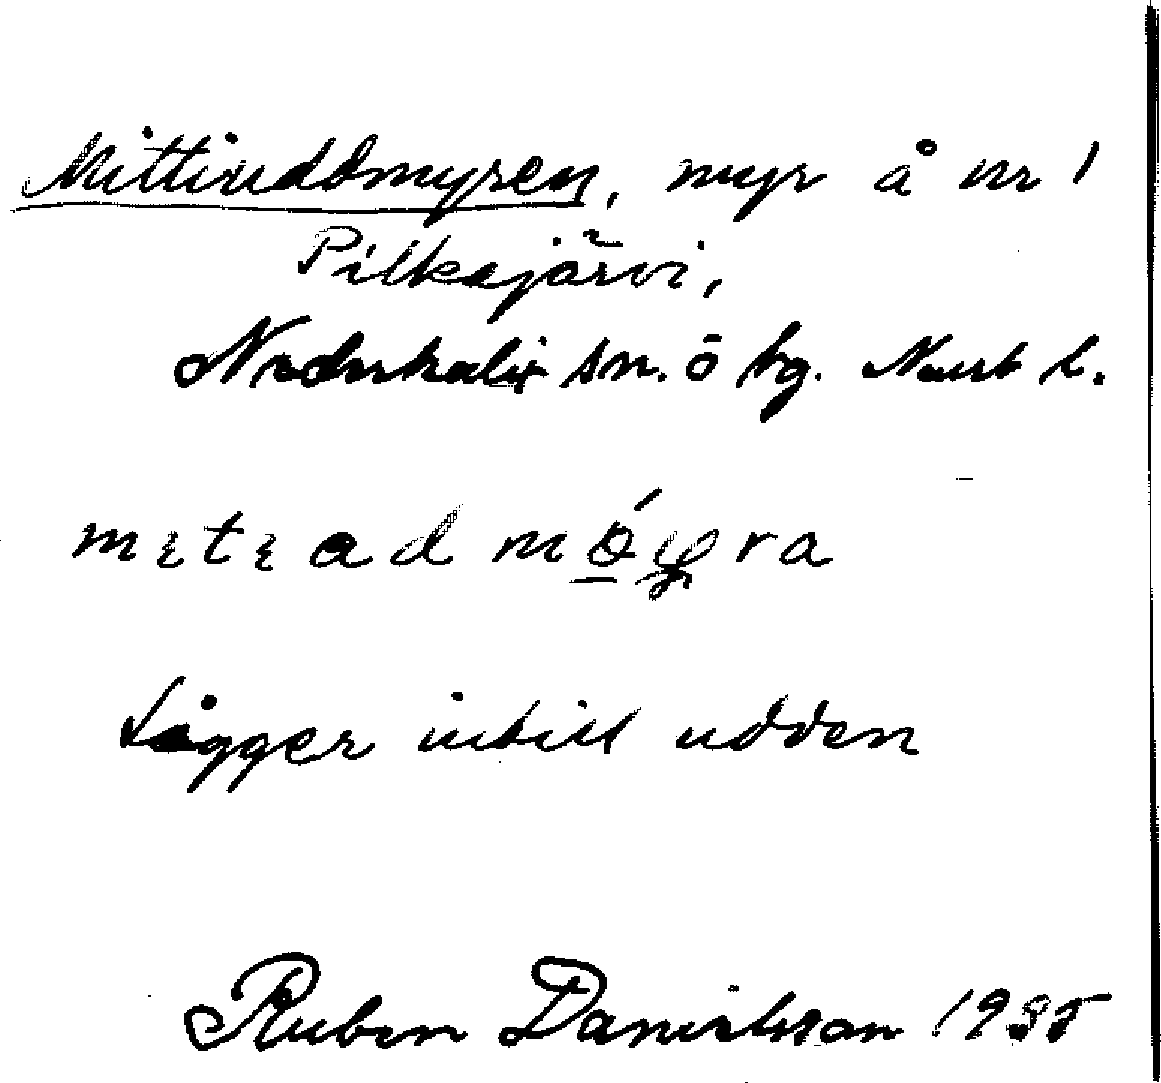 Mittiuddmyren, myr å nr 1
Pilkajärvi,
Nederkalix sn. ö hg. Nort l.
mɩtɩ a d mó̲y̲ra
Ligger intill udden
Ruben Danielsson 1935